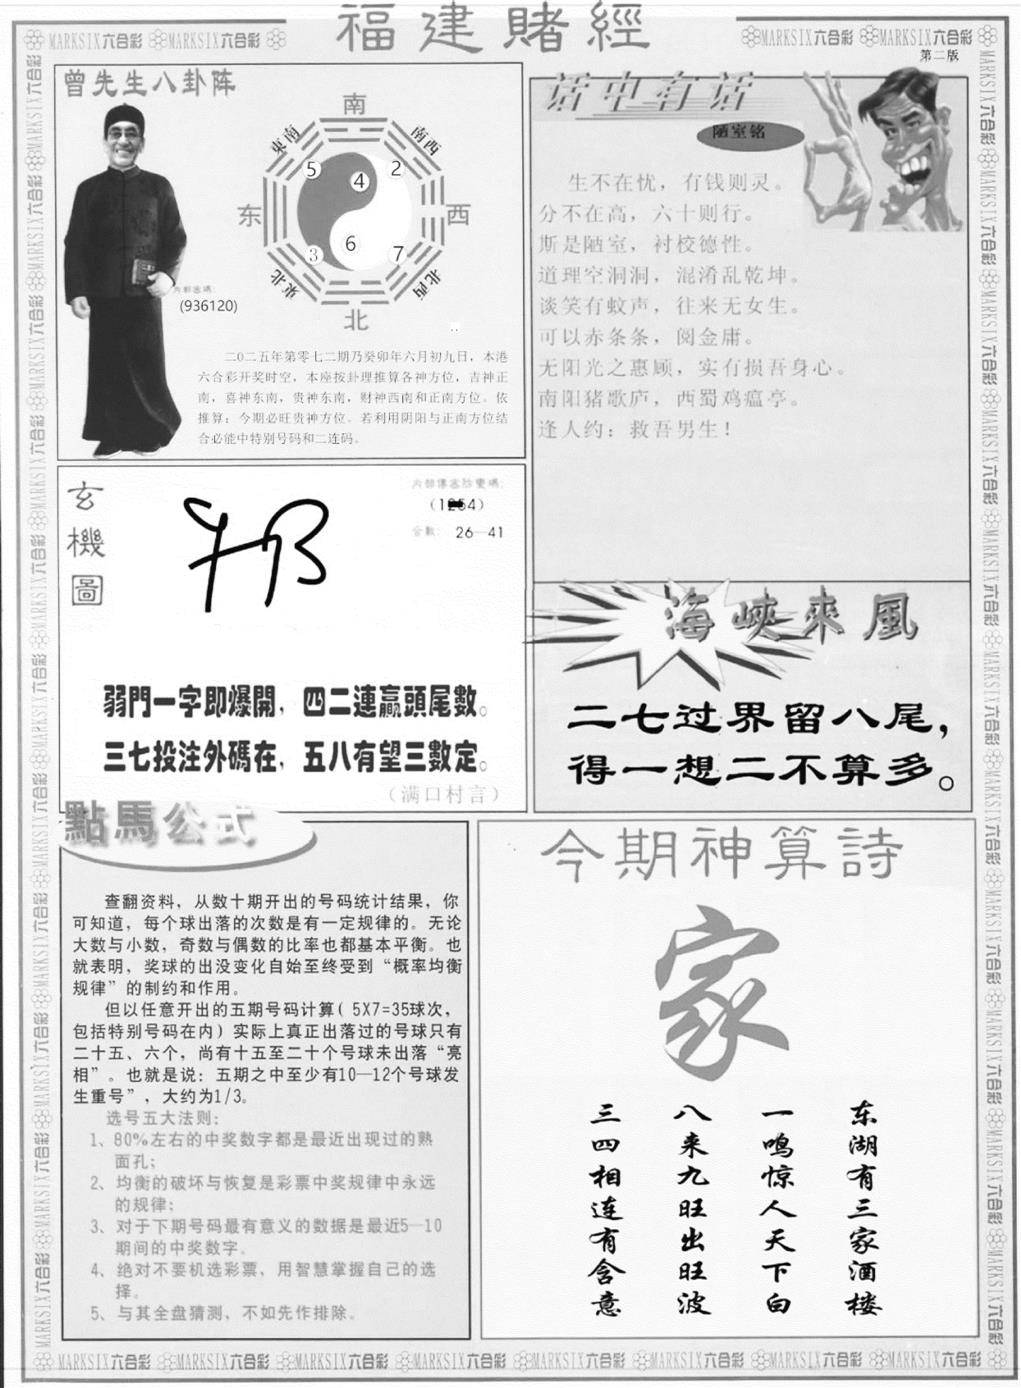 福建賭經
MARKSIX六合彩 MARKSIX六合彩
MARKSIX六合彩 MARKSIX六合彩
第二版
曾先生八卦阵
南
東南
南西
5
4
2
东
西
6
3
7
東北
北西
北
内部密碼:
(936120)
二0二五年第零七二期乃癸卯年六月初九日，本港
六合彩开奖时空，本座按卦理推算各神方位，吉神正
南，喜神东南，贵神东南，财神西南和正南方位。依
推算：今期必旺贵神方位。若利用阴阳与正南方位结
合必能中特别号码和二连码。
话中有话
陋室铭
生不在忧，有钱则灵。
分不在高，六十则行。
斯是陋室，衬校德性。
道理空洞洞，混淆乱乾坤。
谈笑有蚊声，往来无女生。
可以赤条条，阅金庸。
无阳光之惠顾，实有损吾身心。
南阳猪歌庐，西蜀鸡瘟亭。
逢人约：救吾男生！
玄機圖
(1254)
合數: 26—41
弱門一字即爆開，四二連贏頭尾數。
三七投注外碼在，五八有望三數定。
（满口村言）
海峽來風
二七过界留八尾，
得一想二不算多。
點馬公式
查翻资料，从数十期开出的号码统计结果，你
可知道，每个球出落的次数是有一定规律的。无论
大数与小数，奇数与偶数的比率也都基本平衡。也
就表明，奖球的出没变化自始至终受到“概率均衡
规律”的制约和作用。
但以任意开出的五期号码计算( 5X7=35球次，
包括特别号码在内）实际上真正出落过的号球只有
二十五、六个，尚有十五至二十个号球未出落“亮
相”。也就是说：五期之中至少有10—12个号球发
生重号”，大约为1/3。
选号五大法则:
1、80%左右的中奖数字都是最近出现过的熟
面孔；
2、均衡的破坏与恢复是彩票中奖规律中永远
的规律；
3、对于下期号码最有意义的数据是最近5—10
期间的中奖数字。
4、绝对不要机选彩票，用智慧掌握自己的选
择。
5、与其全盘猜测，不如先作排除。
今期神算詩
家
东湖有三家酒楼
一鸣惊人天下白
八来九旺出旺波
三四相连有含意
MARKSIX六合彩 MARKSIX六合彩 MARKSIX六合彩 MARKSIX六合彩 MARKSIX六合彩 MARKSIX六合彩 MARKSIX六合彩 MARKSIX六合彩